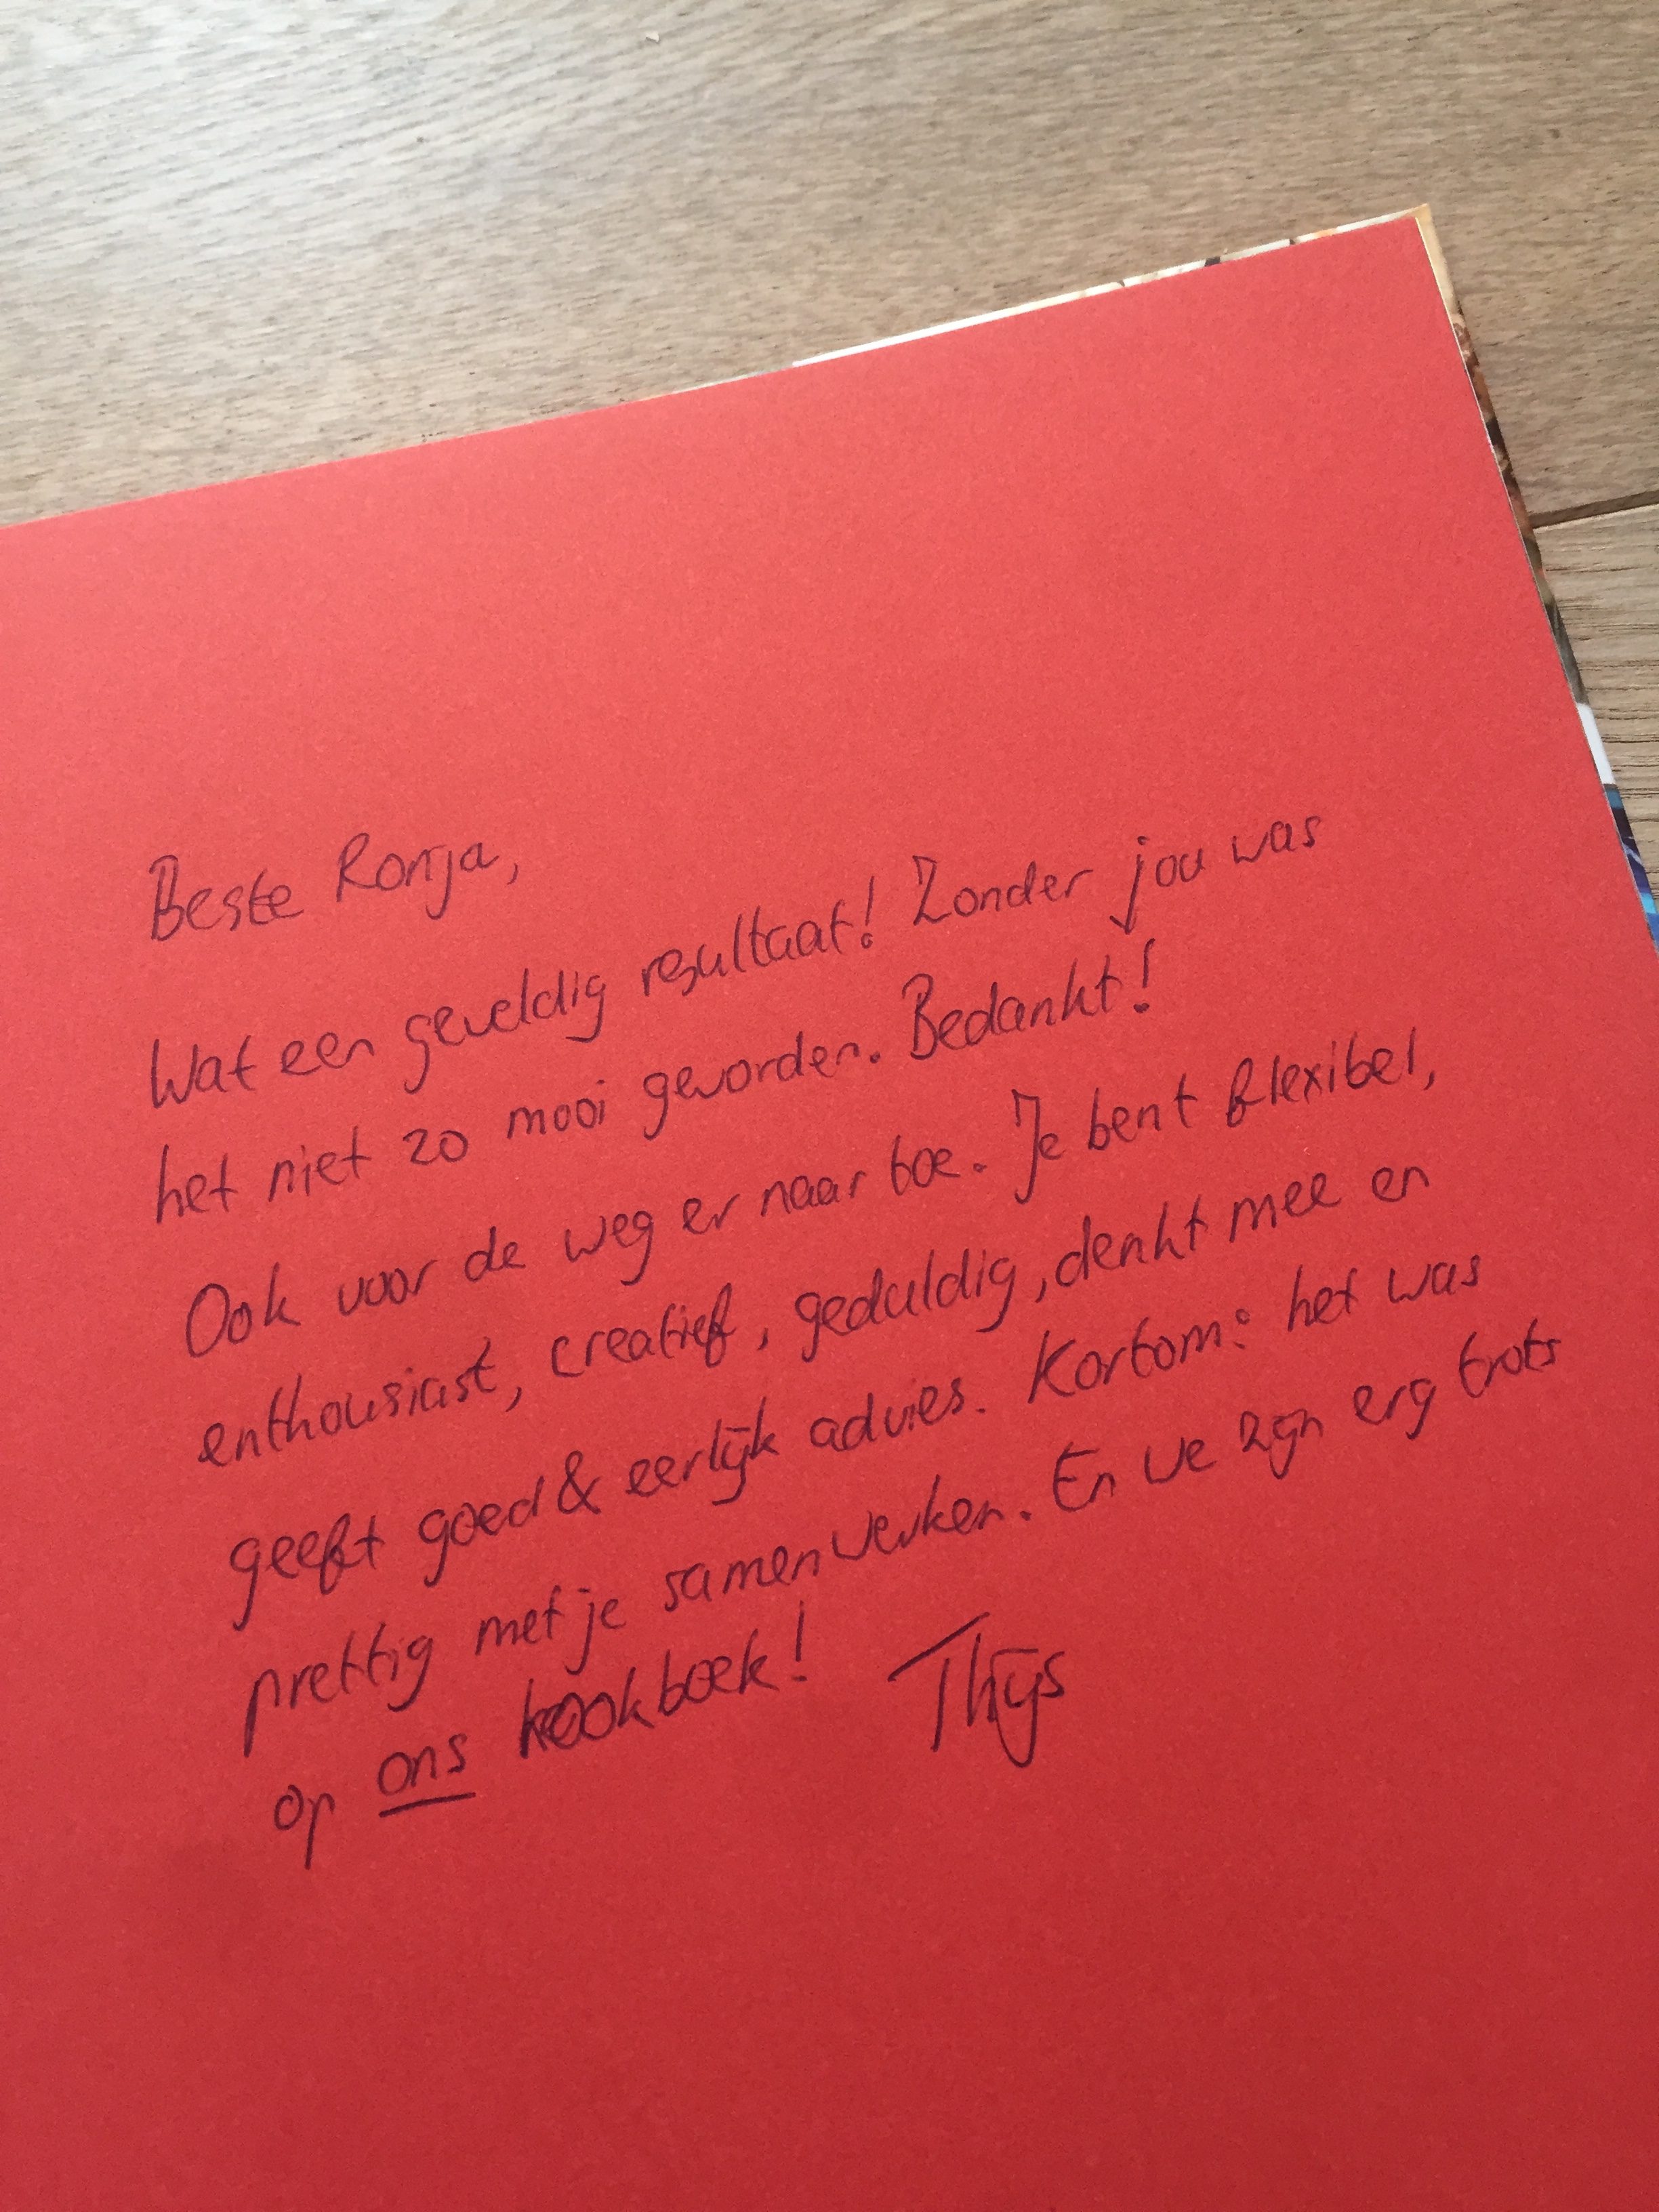 Beste Ronja,
Wat een geweldig resultaat! Zonder jou was
het niet zo mooi geworden. Bedankt!
Ook voor de weg er naar toe. Je bent flexibel,
enthousiast, creatief, geduldig, denkt mee en
geeft goed & eerlijk advies. Kortom: het was
prettig met je samenwerken. En we zijn erg trots
op ons kookboek! Thijs